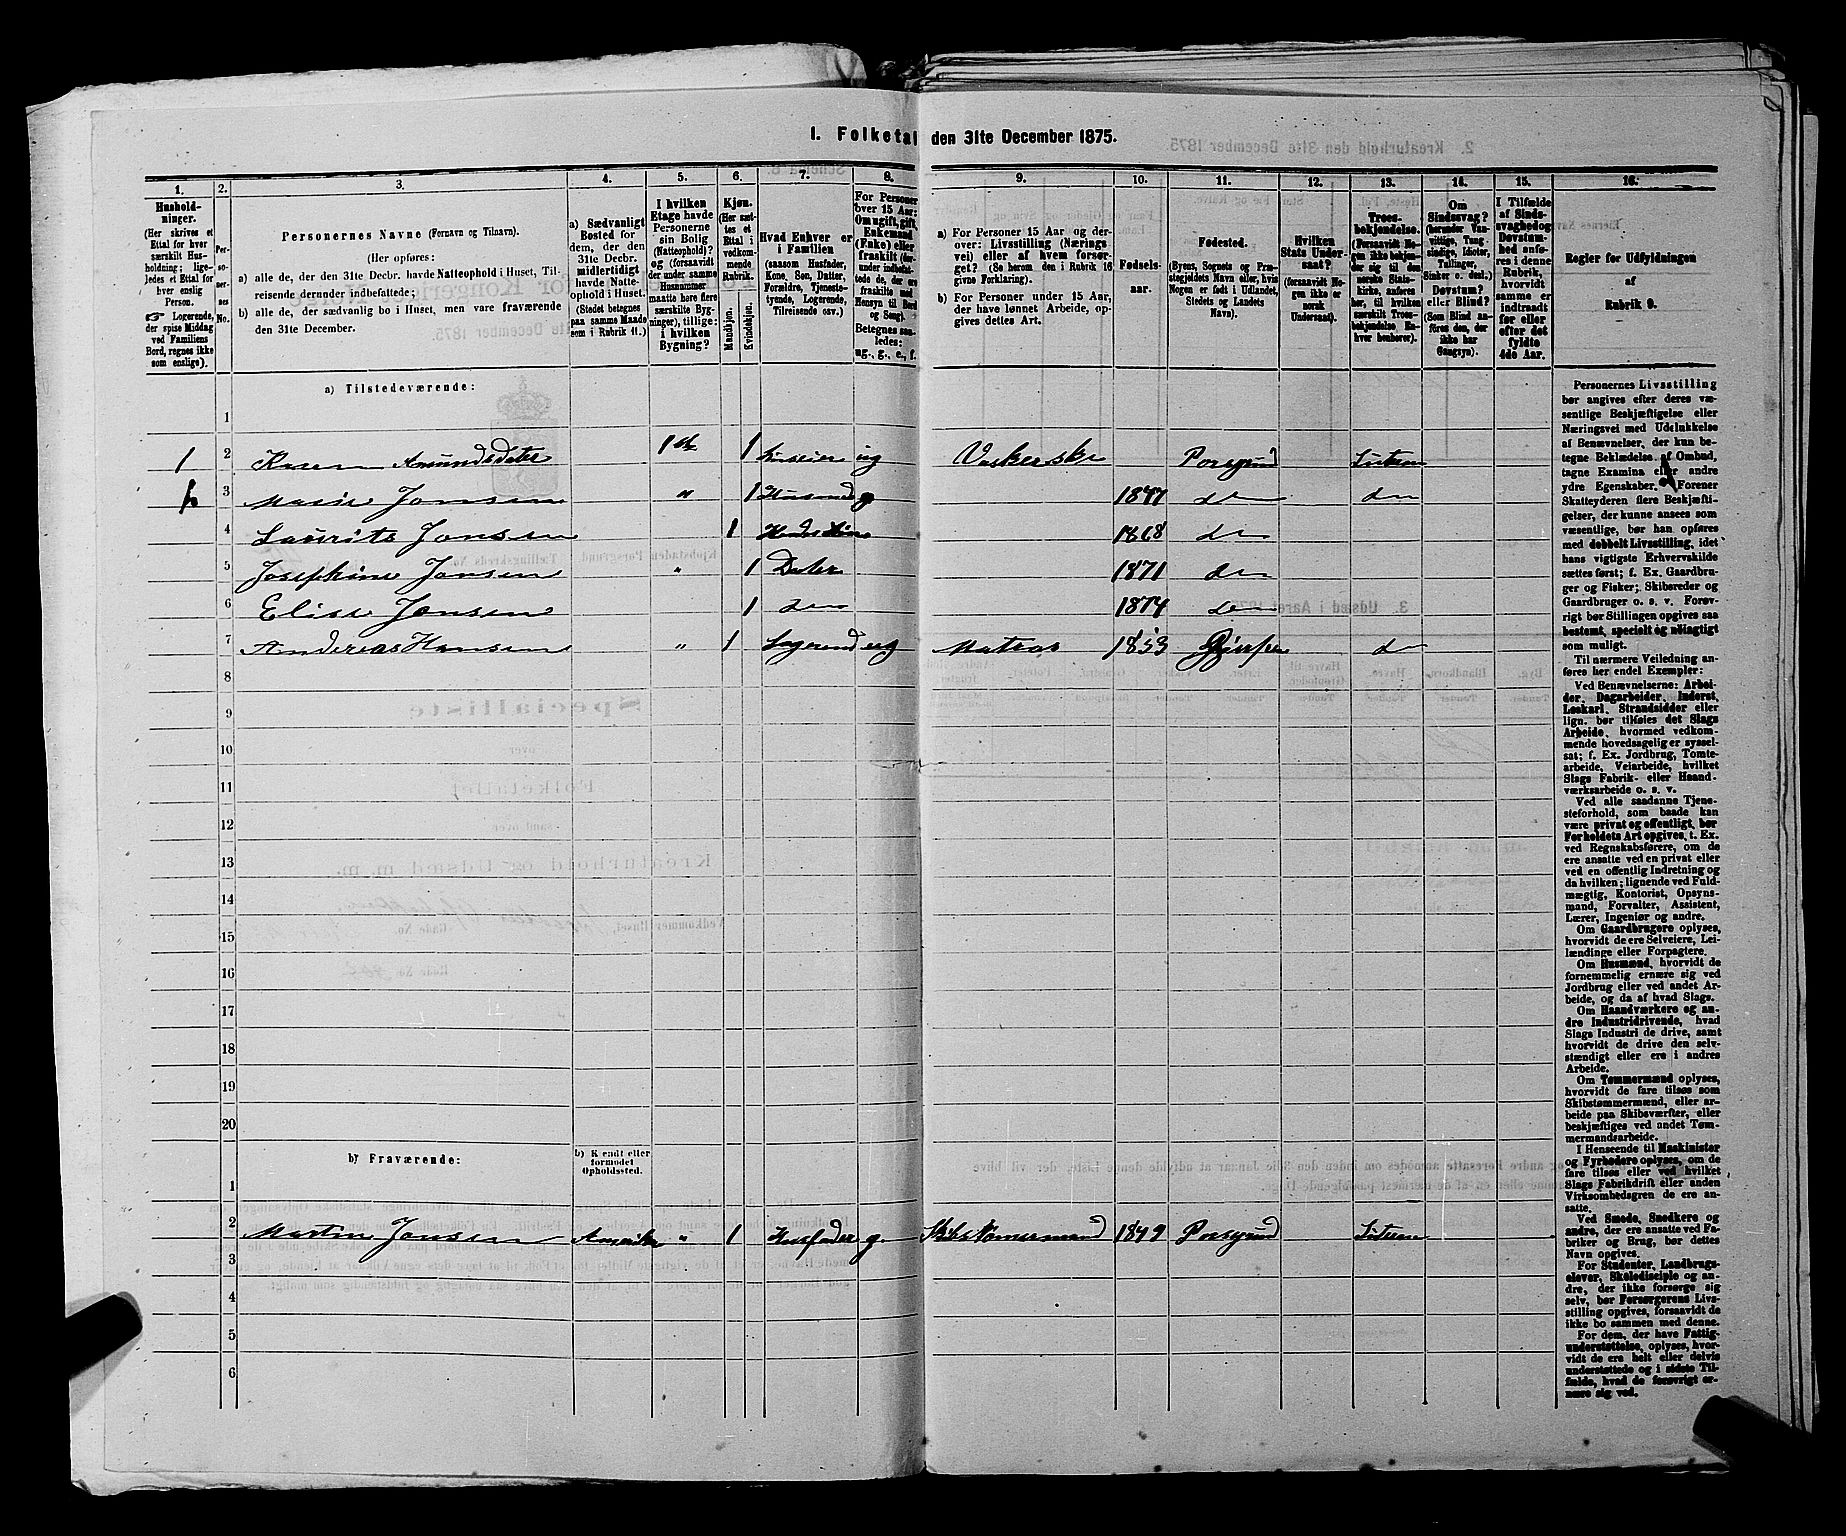 I. Folketal den 31te December 1875.
1. 2. 3. 4. 5. 6. 7. 8. 9. 10. 11. 12. 13. 14. 15. 16.
Husholdninger.
(Her skrives et Ettal for hver særskilt Husholdning; ligeledes et Ettal for hver enslig Person.
☞ Logerende, der spise Middag ved Familiens Bord, regnes ikke som enslige).
Personernes No.
Personernes Navne (Fornavn og Tilnavn).
(Her opføres:
a) alle de, der den 31te Decbr. havde Natteophold i Huset, Tilreisende derunder indbefattede;
b) alle de, der sædvanlig bo i Huset, men vare fraværende den 31te December.
a) Sædvanligt Bosted for dem, der den 31te Decbr. midlertidigt havde Natteophold i Huset. (Stedet betegnes paa samme Maade som i Rubrik 11.)
I hvilken Etage havde Personerne sin Bolig (Natteophold)? og (forsaavidt under samme Husnummer maatte høre flere særskilte Bygninger), tillige: i hvilken Bygning?
Kjøn.
(Her sættes et Ettal i vedkommende Rubrik.
Mandkjøn.
Kvindekjøn.
Hvad Enhver er i Familien
(saasom Husfader, Kone, Søn, Datter, Forældre, Tjenestetyende, Logerende, Tilreisende osv.)
For Personer over 15 Aar: Om ugift, gift, Enkemand (Enke) eller fraskilt
Betegnes saaledes: ug., g., e., f.
a) For Personer 15 Aar og derover: Livsstilling (Næringsvei) eller af hvem forsørget? (Se herom den i Rubrik 16 givne Forklaring).
b) For Personer under 15 Aar, der have lønnet Arbeide, opgives dettes Art.
Fødselsaar.
Fødested.
(Byens, Sognets og Præstegjeldets Navn eller, hvis Nogen er født i Udlandet, Stedets og Landets Navn).
Hvilken Stats Undersaat?
(forsaavidt Nogen ikke er norsk Undersaat).
Troesbekjendelse.
(Forsaavidt Nogen ikke bekjender sig til den norske Statskirke, anføres her, til hvilken særskilt Troesbekjendelse Enhver henhører).
Om Sindssvag? (herunder Vanvittige, Tungsindige, Idioter, Tullinger, Sinker o. desl.) Døvstum? eller Blind? (Som Blind anføres den, der ikke har Gangsyn).
I Tilfælde af Sindssvaghed og Døvstumhed anføres i denne Rubrik, hvorvidt samme er indtraadt før eller efter det fyldte 4de Aar.
Regler for Udfyldningen
af
Rubrik 9.
a) Tilstedeværende:
1
1 2 Karen Amundsdater 1 st 1 Huseier ug Vaskerske Porsgrund Lutean
1 3 Marie Jansen " 1 Husmod g 1847 do do
4 Laurits Jansen 1 Hendes Søn 1868 do
5 Josephine Jansen " 1 Dater 1871 do
6 Elise Jansen 1 do 1874 do
7 Andreas Hansen " 1 Logerend ug Matros 1853 Gjerpen do
8
9
10
11
12
13
14
15
16
17
18
19
20
b) Fraværende:
b) Kjendt eller formodet Opholdssted.
1
2 Martin Jansen Amerika " 1 Husfader g. Skibstømermand 1849 Porsgrund Lutean
3
4
5
6
Personernes Livsstilling
bør angives efter deres væsentlige
Beskjæftigelse eller
Næringsvei med Udelukkelse
af Benævnelser, der kun betegne
Beklædelse af Ombud,
tagne Examina eller andre
ydre Egenskaber. Forener
Skatteyderen flere Beskjæftigelser,
der kunne ansees som
væsentlige, bør han opføres
med dobbelt Livsstilling, idet
hans vigtigste Erhvervskilde
sættes først; f. Ex. Gaardbruger
og Fisker; Skibsreder og
Gaardbruger o. s. v. Forøvrigt
bør Stillingen opgives saa
bestemt, specielt og nøiagtigt
som muligt.
Til nærmere Veiledning anføres
her endel Exempler:
Ved Benævnelserne: Arbeider,
Dagarbeider, Inderst,
Løskarl, Strandsidder eller
lign. bør tilføies det Slags
Arbeide, hvormed vedkommende
hovedsagelig er sysselsat;
f. Ex. Jordbrug, Tomtearbeide,
Veiarbeide, hvilket
Slags Fabrik- eller Haandværksarbeide
o. s. v.
Ved alle saadanne Tjenesteforhold,
som baade kan
være privat og offentligt, bør
Forholdets Art opgives, t. Ex.
ved Regnskabsførere, om de
ere ansatte ved en privat eller
ved en offentlig Indretning og
da hvilken; lignende ved Fuldmægtig,
Kontorist, Opsynsmand,
Forvalter, Assistent,
Lærer, Ingeniør og andre.
Om Gaardbrugere oplyses,
hvorvidt de ere Selveiere, Leilændinge
eller Forpagtere.
Om Husmænd, hvorvidt de
fornemmelig ernære sig ved
Jordbrug eller ved andet Arbeide,
og da af hvad Slags.
Om Haandværkere og andre
Industridrivende, hvad
Slags Industri de drive, samt
hvorvidt de drive den selvstændigt
eller ere i andres
Arbeide.
Om Tømmermænd oplyses,
hvorvidt de fare tilsøs som
Skibstømmermænd, eller arbeide
paa Skibsværfter, eller
beskjæftiges ved andet Tømmermandsarbeide.
I Henseende til Maskinister
og Fyrbødere oplyses, om de
fare tilsøs eller ved hvilket
Slags Fabrikdrift eller anden
Virksomhedsgren de ere ansatte.
Ved Smede, Snedkere og
andre, der ere ansatte ved Fabriker
og Brug, bør dettes
Navn opgives.
For Studenter, Landbrugselever,
Skoledisciple og andre,
der ikke forsørge sig
selv, bør Forsørgerens Livsstilling
opgives, forsaavidt de
ikke bo sammen med denne.
For dem, der have Fattigunderstøttelse,
oplyses, hvorvidt
de ere helt eller delvis
understøttede og i sidste Tilfælde,
hvad de forøvrigt ernære
sig ved.